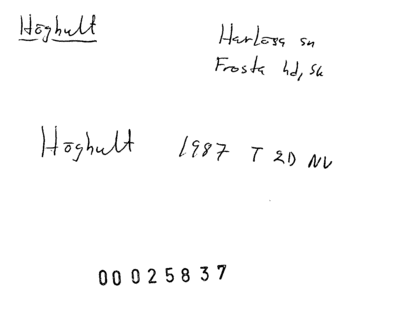 Höghult
Harlösa sn
Frosta hd, Sk
Höghult 1987 T 2D NV
00025837